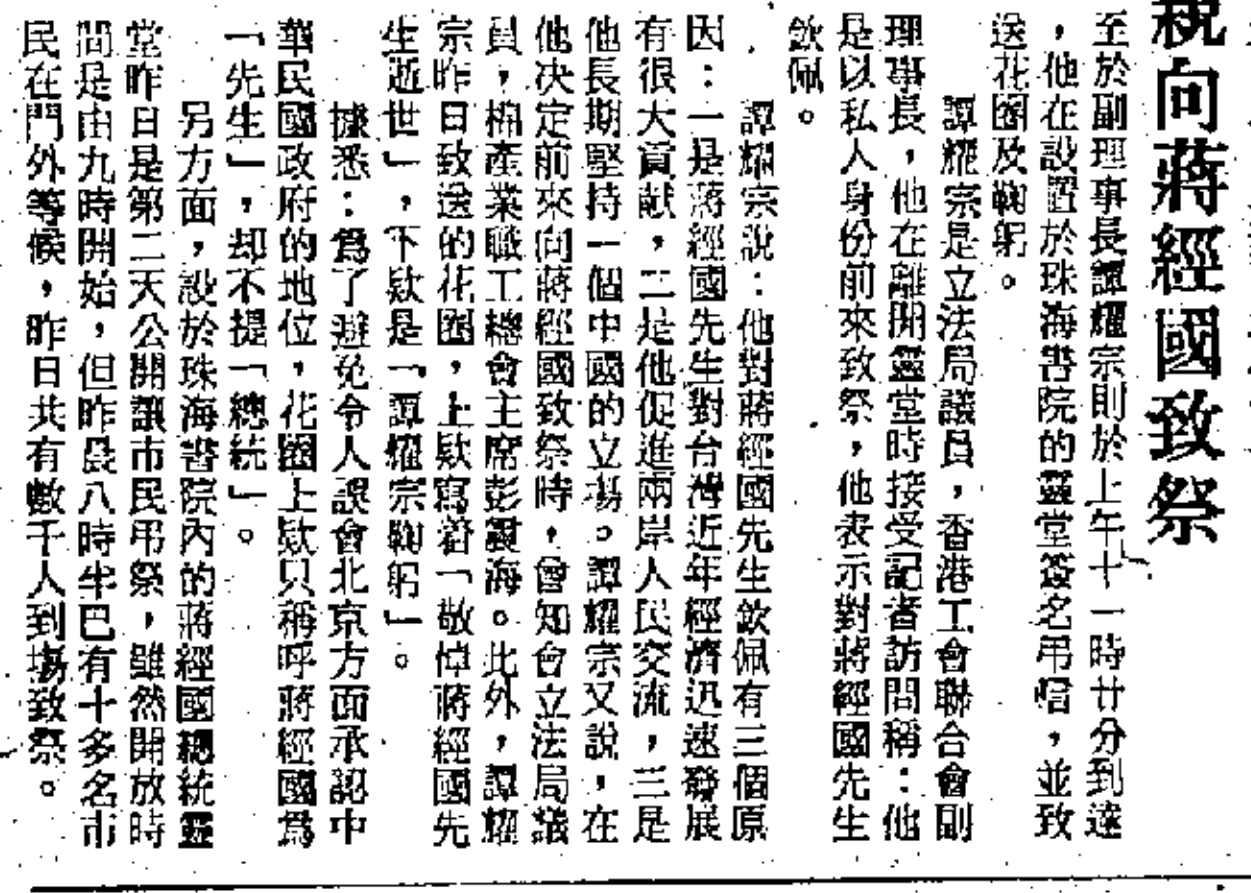 親向蔣經國致祭
至於副理事長譚耀宗則於上午十一時廿分到達
，他在設置於珠海書院的靈堂簽名弔唁，並致
送花圈及鞠躬。
譚耀宗是立法局議員，香港工會聯合會副
理事長，他在離開靈堂時接受記者訪問稱：他
是以私人身份前來致祭，他表示對蔣經國先生
欽佩。
譚耀宗說：他對蔣經國先生欽佩有三個原
因：一是蔣經國先生對台灣近年經濟迅速發展
有很大貢献，二是他促進兩岸人民交流，三是
他長期堅持一個中國的立場。譚耀宗又說，在
他决定前來向蔣經國致祭時，曾知會立法局議
員，棉產業職工總會主席彭震海。此外，譚耀
宗昨日致送的花圈，上欵寫着「敬悼蔣經國先
生逝世」，下欵是「譚耀宗鞠躬」。
據悉：爲了避免令人誤會北京方面承認中
華民國政府的地位，花圈上欵只稱呼蔣經國爲
「先生」，却不提「總統」。
另方面，設於珠海書院內的蔣經國總統靈
堂昨日是第二天公開讓市民弔祭，雖然開放時
間是由九時開始，但昨晨八時半巴有十多名市
民在門外等候，昨日共有數千人到塲致祭。